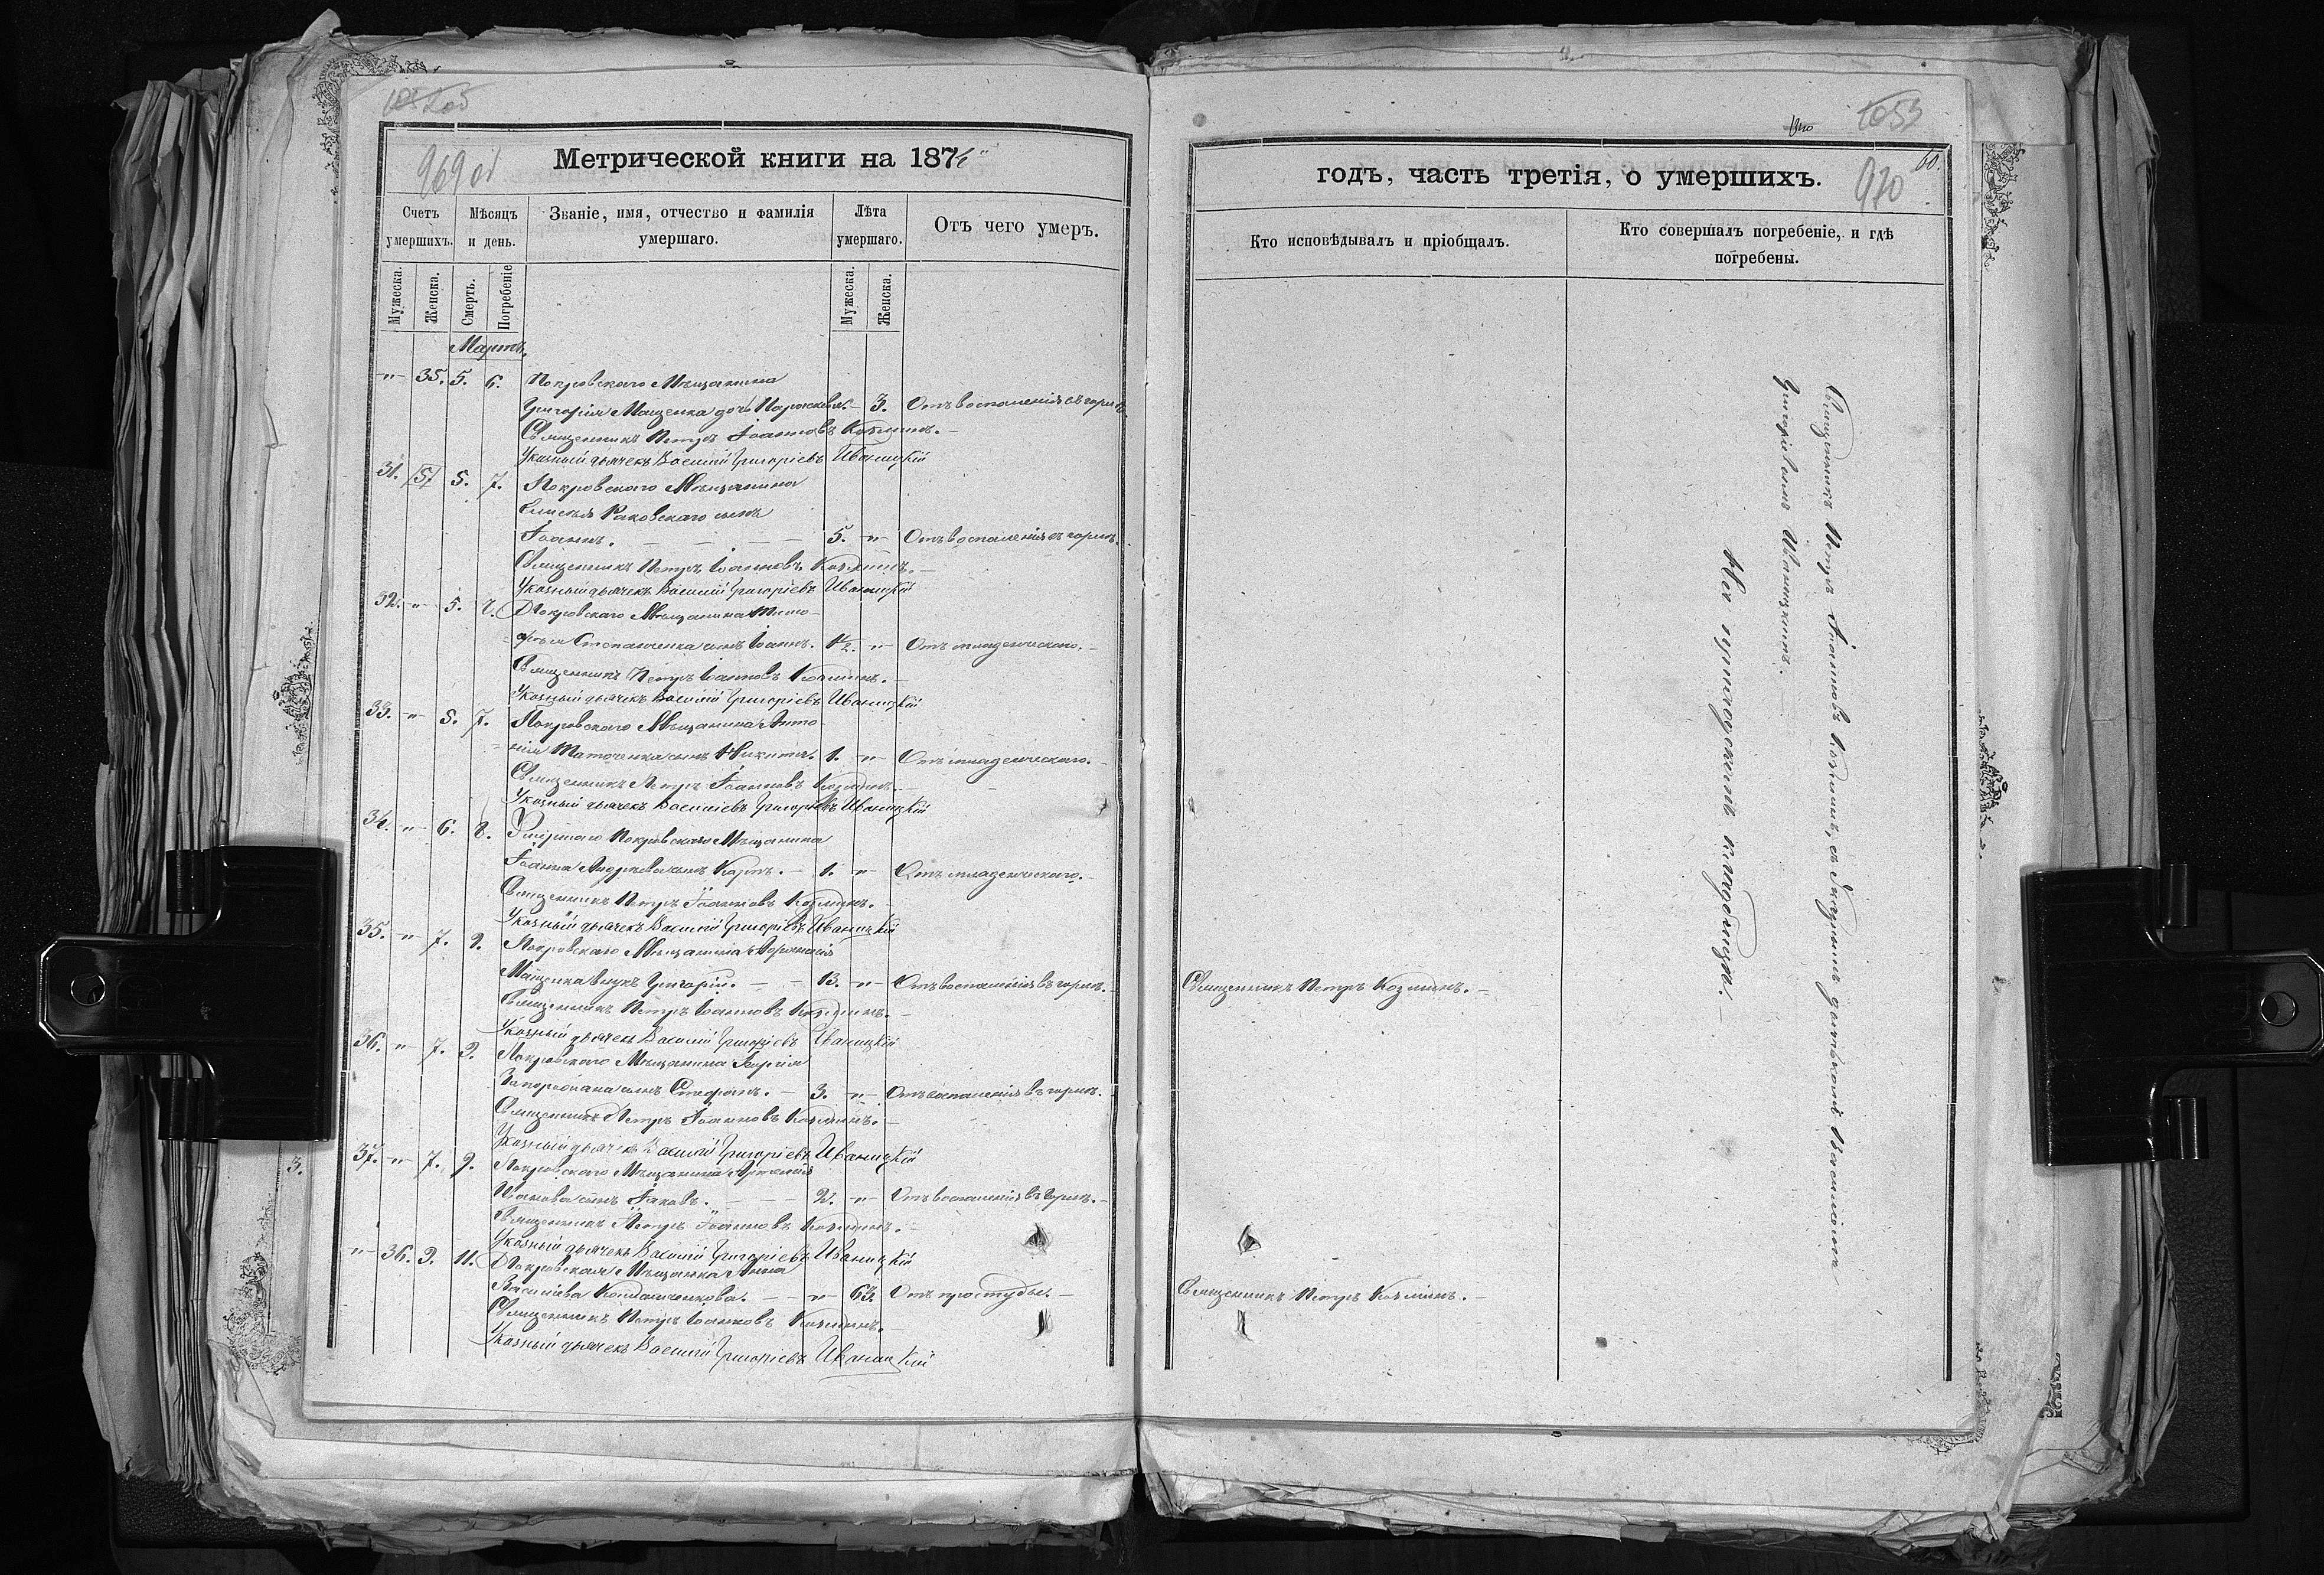 205
1053
969 об
60.
970
Метрической книги на 187
годъ, часть третія, о умершихъ.
Счетъ умершихъ.
Мѣсяцъ и день.
Званіе, имя, отчество и фамилія умершаго.
Лѣта умершаго.
Отъ чего умеръ.
Кто исповѣдывалъ и пріобщалъ.
Кто совершалъ погребеніе, и гдѣ погребены.
Мужеска.
Женска.
Смерть.
Погребеніе
Мужеска.
Женска.
Мартъ.
"- 35. 5. 6. Покровскаго Мѣщанина
Григорія Мащенка дочь Параскева. 3. Отъ воспаленія въ горлѣ.
Священникъ Петръ Іоанновъ Козминъ.-
Указный дьячекъ Василій Григоріевъ Иваницкій
31. 5. 7. Покровскаго Мѣщанина
Раковскаго сынъ
Іоаннъ. - - - 5. "- Отъ воспаленія въ горлѣ.
Священникъ Петръ Іоанновъ Козминъ.-
Указный дьячекъ Василій Григоріевъ Иваницкій
32. "- 5. 7. Покровскаго Мѣщанина Тимо-
фея Степаненка сынъ Іоаннъ. 1/2. "- Отъ младенческаго.-
Священникъ Петръ Іоанновъ Козминъ.-
Указный дьячекъ Василій Григоріевъ Иваницкій
33. "- 5. 7. Покровскаго Мѣщанина Анто-
нія сынъ Никита. 1. "- Отъ младенческаго.-
Священникъ Петръ Іоанновъ Козминъ.-
Указный дьячекъ Василіевъ Григоріевъ Иваницкій
34. "- 6. 8. Умершаго Покровскаго Мѣщанина
Іоанна Андреева сынъ Карпъ.- 1. "- Отъ младенческаго.-
Священникъ Петръ Іоанновъ Козминъ.-
Указный дьячекъ Василій Григоріевъ Иваницкій
35. "- 7. 9. Покровскаго Мѣщанина
Мащенка внукъ Григорій. - - 13. "- Отъ воспаленія въ горлѣ.-
Священникъ Петръ Козминъ.-
Священникъ Петръ Іоанновъ Козминъ.-
Указный дьячекъ Василій Григоріевъ Иваницкій
36. "- 7. 9. Покровскаго Мѣщанина
сынъ Стефанъ.- 3. "- Отъ воспаленія въ горлѣ.
Священникъ Петръ Іоанновъ Козминъ.-
Указный дьячекъ Василій Григоріевъ Иваницкій
37. "- 7. 9. Покровскаго Мѣщанина Артемія
сынъ Іаковъ. - - - 2. "- Отъ воспаленія въ горлѣ.-
Священникъ Петръ Іоанновъ Козминъ.-
Указный дьячекъ Василій Григоріевъ Иваницкій
"- 36. 9. 11. Покровская Мѣщанка Анна
Васильева. - - "- 63. Отъ простуды.-
Священникъ Петръ Козминъ.-
Священникъ Петръ Іоанновъ Козминъ.
Указный дьячекъ Василій Григоріевъ Иваницкій
Священникъ Петръ Іоанновъ Козминъ, съ Указнымъ дьячкомъ Василіемъ
Григоріевымъ Иваницкимъ.-
На приходскомъ кладбищѣ.-
3.